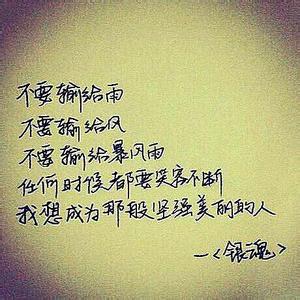 不要输给雨
不要输给风
不要输给暴风雨
任何时候都要笑容不断
我想成为那般坚强美丽的人
—《银魂》